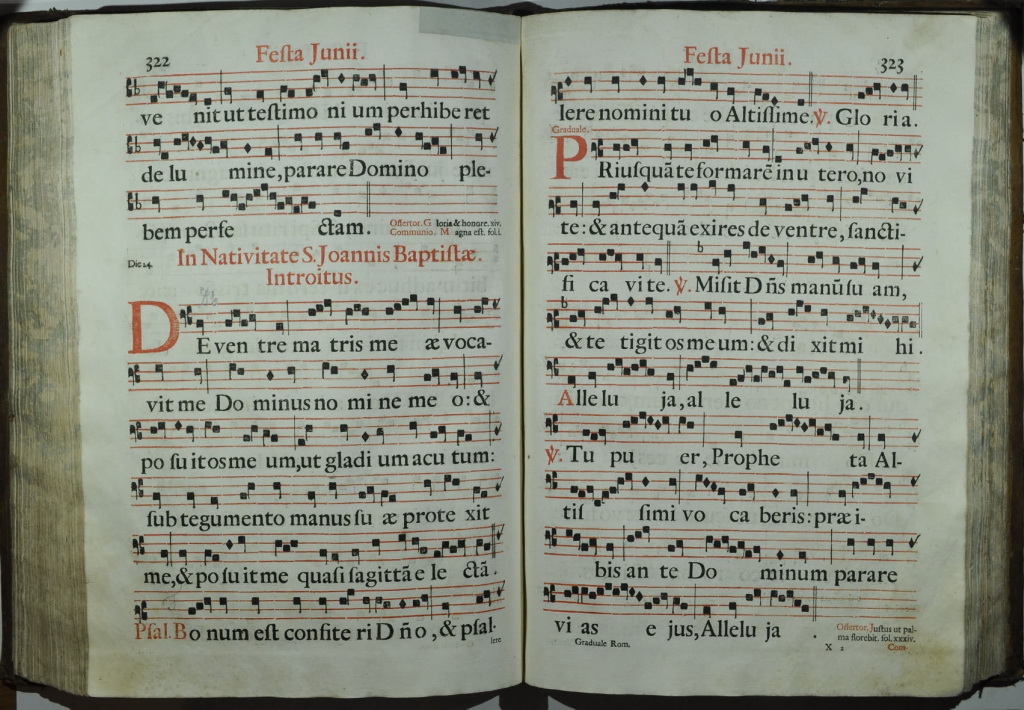 322
Festa Junii.
ve nit ut testimo ni um perhibe ret
de lu mine, parare Domino ple-
bem perfe ctam.
Offertor. G loria & honore. xiv.
Communio. M agna est. fol.
Die 24.
In Nativitate S. Joannis Baptistæ.
Introitus.
DE ven tre ma tris me æ voca-
vit me Do minus no mi ne me o: &
po su it os me um, ut gladi um acu tum:
sub tegumento manus su æ prote xit
me, & po su it me quasi sagittã e le ctã.
Psal. Bo num est confite ri D ño, & psal-
lere
Festa Junii.
323
lere nomini tu o Altissime. ℣. Glo ria.
Graduale.
PRiusquã te formarẽ in u tero, no vi
te: & antequã exires de ventre, sancti-
fi ca vi te. ℣. Misit D ñs manũ su am,
& te tigit os me um: & di xit mi hi.
Alle lu ja, al le lu ja.
℣. Tu pu er, Prophe ta Al-
tis simi vo ca beris: præ i-
bis an te Do minum parare
vi as e jus, Allelu ja .
Offertor. Justus ut pal-
ma florebit. fol. xxxiv.
Graduale Rom.
X 2
Com-